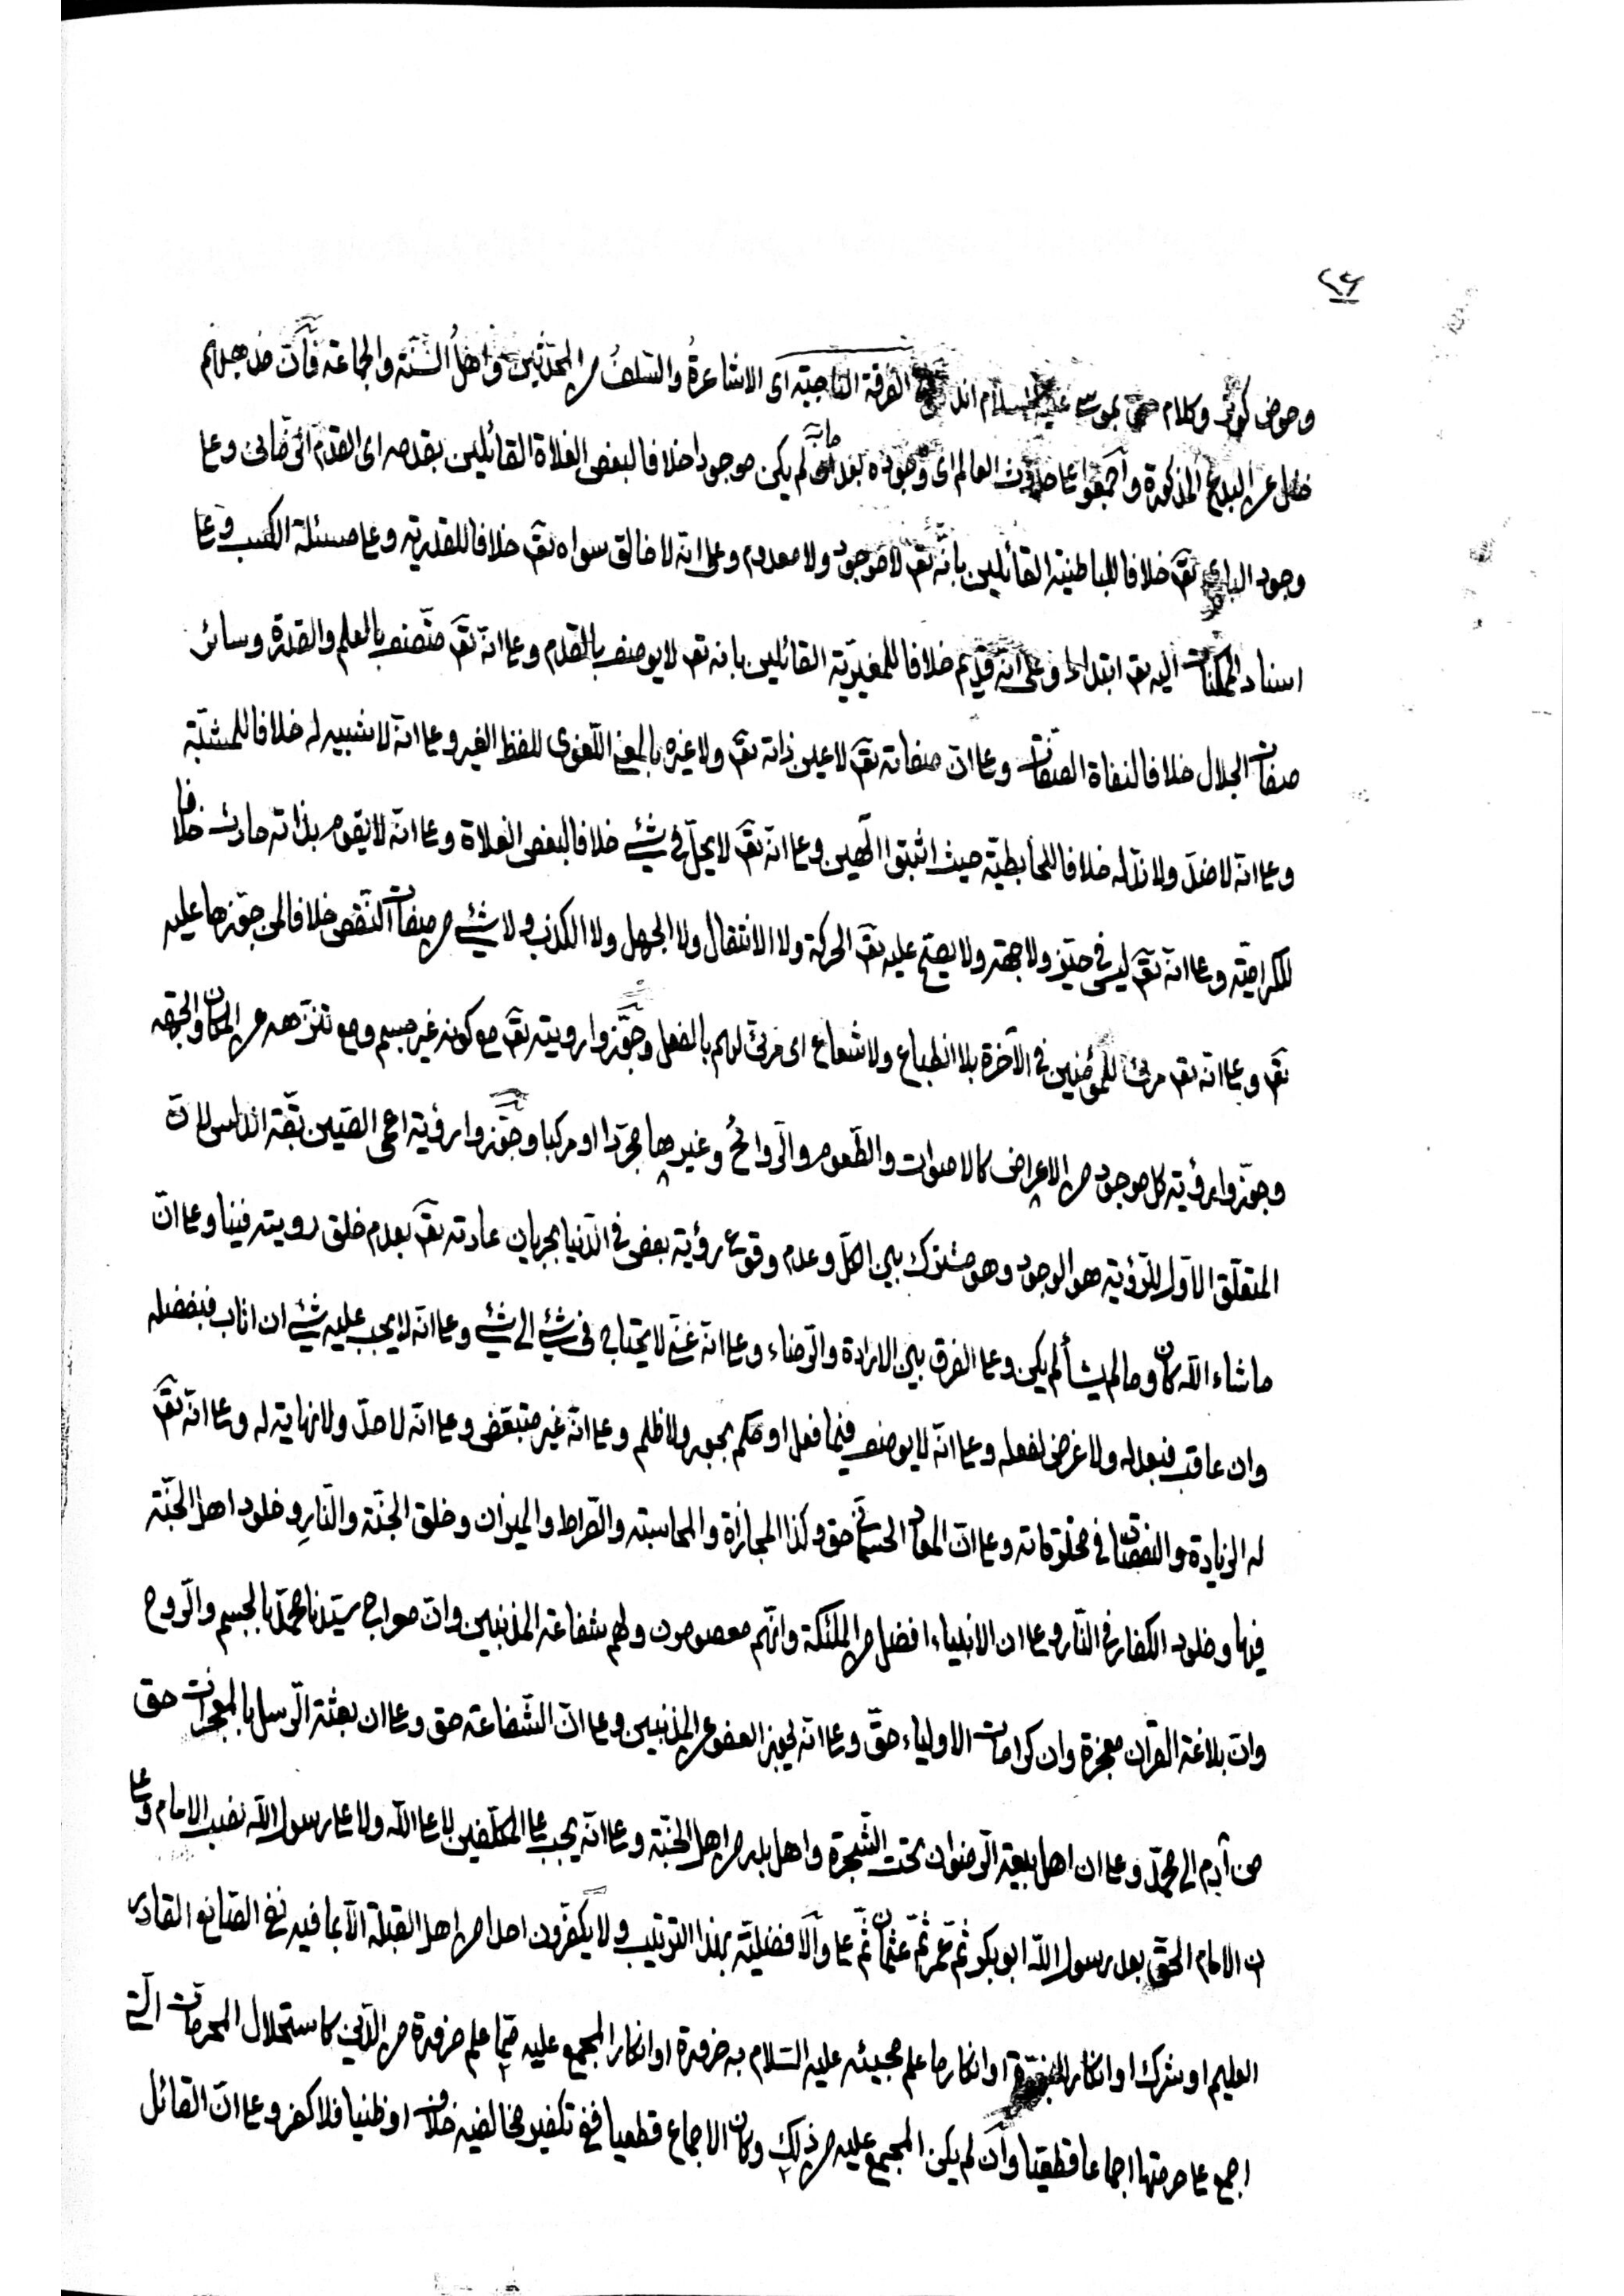 ٢٦
وحوض كوثر وكلام بموسى عليه السلام الفرقة الناجية اى الاشاعرة والسلف من المحدثين واهل السنة والجماعة فان مذهبهم
خال عن البدع المذكورة واجمعوا عا حدوث العالم اى وجوده بعد ما لم يكن موجودا خلافا لبعض الغلاة القائلين بقدمه اى القدم الزمانى وعا
وجود البارى تع خلافا للباطنية القائلين بانّه تع لا موجود ولا معدوم وعلى انه لا خالق سواه تع خلافا للقدرية وعا مسئلة الكسب وعا
اسناد الممكنات اليه تع ابتداء وعلى انه قديم خلافا للمغيريّة القائلين بانه تع لا يوصف بالقدم وعا انّه تع متّصف بالعلم والقدرة وسائر
صفات الجلال خلافا لنفاة الصفات وعا ان صفاته تع لا عين ذاته تع ولا غيره بالمعنى اللّغوى للفظ الغير وعا انه لا شبيه له خلافا للمشبّة
وعا انه لا ضدّ ولا ندّ له خلافا للحابطيّة حيث اثبتوا الٓهين وعا انه تع لا يحلّ فى شئ خلافا لبعض الغلاة وعا انّه لا يقوم بذاته حادث خلافا
للكراميّة وعا انه تع ليس فى حيّز ولا جهة ولا يصح عليه تع الحركة ولا الانتقال ولا الجهل ولا الكذب ولا شئ من صفات النقص خلافا لمن جوّزها عليه
تع وعا انه تع مرئى للمؤمنين فى الآخرة بلا انطباع ولا شعاع اى مرئى لهم بالفعل وجوّزوا رويته تع مع كونه غير جسم ومع تنزهه عن المكان والجهة
وجوّزوا رؤية كل موجود من الاعراض كالاصوات والطّعوم والرّوائح وغيرها مجرّدا او مركبا وجوّزوا رؤية اعمى الصين بقّة اندلس لان
المتعلّق الاوّل للرّؤية هو الوجود وهو مشترك بين الكلّ وعدم وقوع رؤية بعض فى الدّنيا بجريان عادته تع بعدم خلق رويته فينا وعا ان
ما شاء الله كان وما لم يشأ لم يكن وعا الفرق بين الارادة والرّضاء وعا انّه غنىّ لا يحتاج فى شئ الى شئ وعا انّه لا يجب عليه شئ ان اثاب فبفضله
وان عاقب فبعدله ولا غرض لفعله وعا انّه لا يوصف فيما فعل او حكم بجور ولا ظلم وعا انّه غير متبعّض وعا انّه لا حدّ ولا نهاية له وعا انّه تع
له الزيادة والنقصان فى مخلوقاته وعا ان المعاد الجسمانى حق وكذا المجازاة والمحاسبة والصّراط والميزان وخلق الجنّة والنّار وخلود اهل الجنّة
فيها وخلود الكفار فى النّار وعا ان الانبياء افضل من الملئكة وانّهم معصومون ولهم شفاعة المذنبين وان معراج سيّدنا محمّد بالجسم والرّوح
وان بلاغة القران معجزة وان كرامات الاولياء حقّ وعا انه يجوز العفو عن المذنبين وعا انّ الشّفاعة حق وعا ان بعثة الرّسل بالمعجزات حق
من آدم الى محمّد وعا ان اهل بيعة الرّضوان تحت الشّجرة واهل بدر من اهل الجنّة وعا انّه يجب عا المكلّفين لا عا الله ولا عا رسول الله نصب الامام وعا
ان الامام الحق بعد رسول الله ابو بكر ثم عمر ثمّ عثمان ثمّ عا والافضليّة بهذا الترتيب ولا يكفّرون احدا من اهل القبلة الّا بما فيه نفى الصّانع القادر
العليم او شرك او انكار النبوّة او انكار ما علم مجيئه عليه السّلام به ضرورة او انكار المجمع عليه ممّا علم ضرورة من الدّين كاستحلال المحرمات الّتى
اجمع عا حرمتها اجماعا قطعيّا وان لم يكن المجمع عليه من ذلك وكان الاجماع قطعيا ففى تكفير مخالفيه خلاف او ظنيا فلا كفر وعا انّ القائل